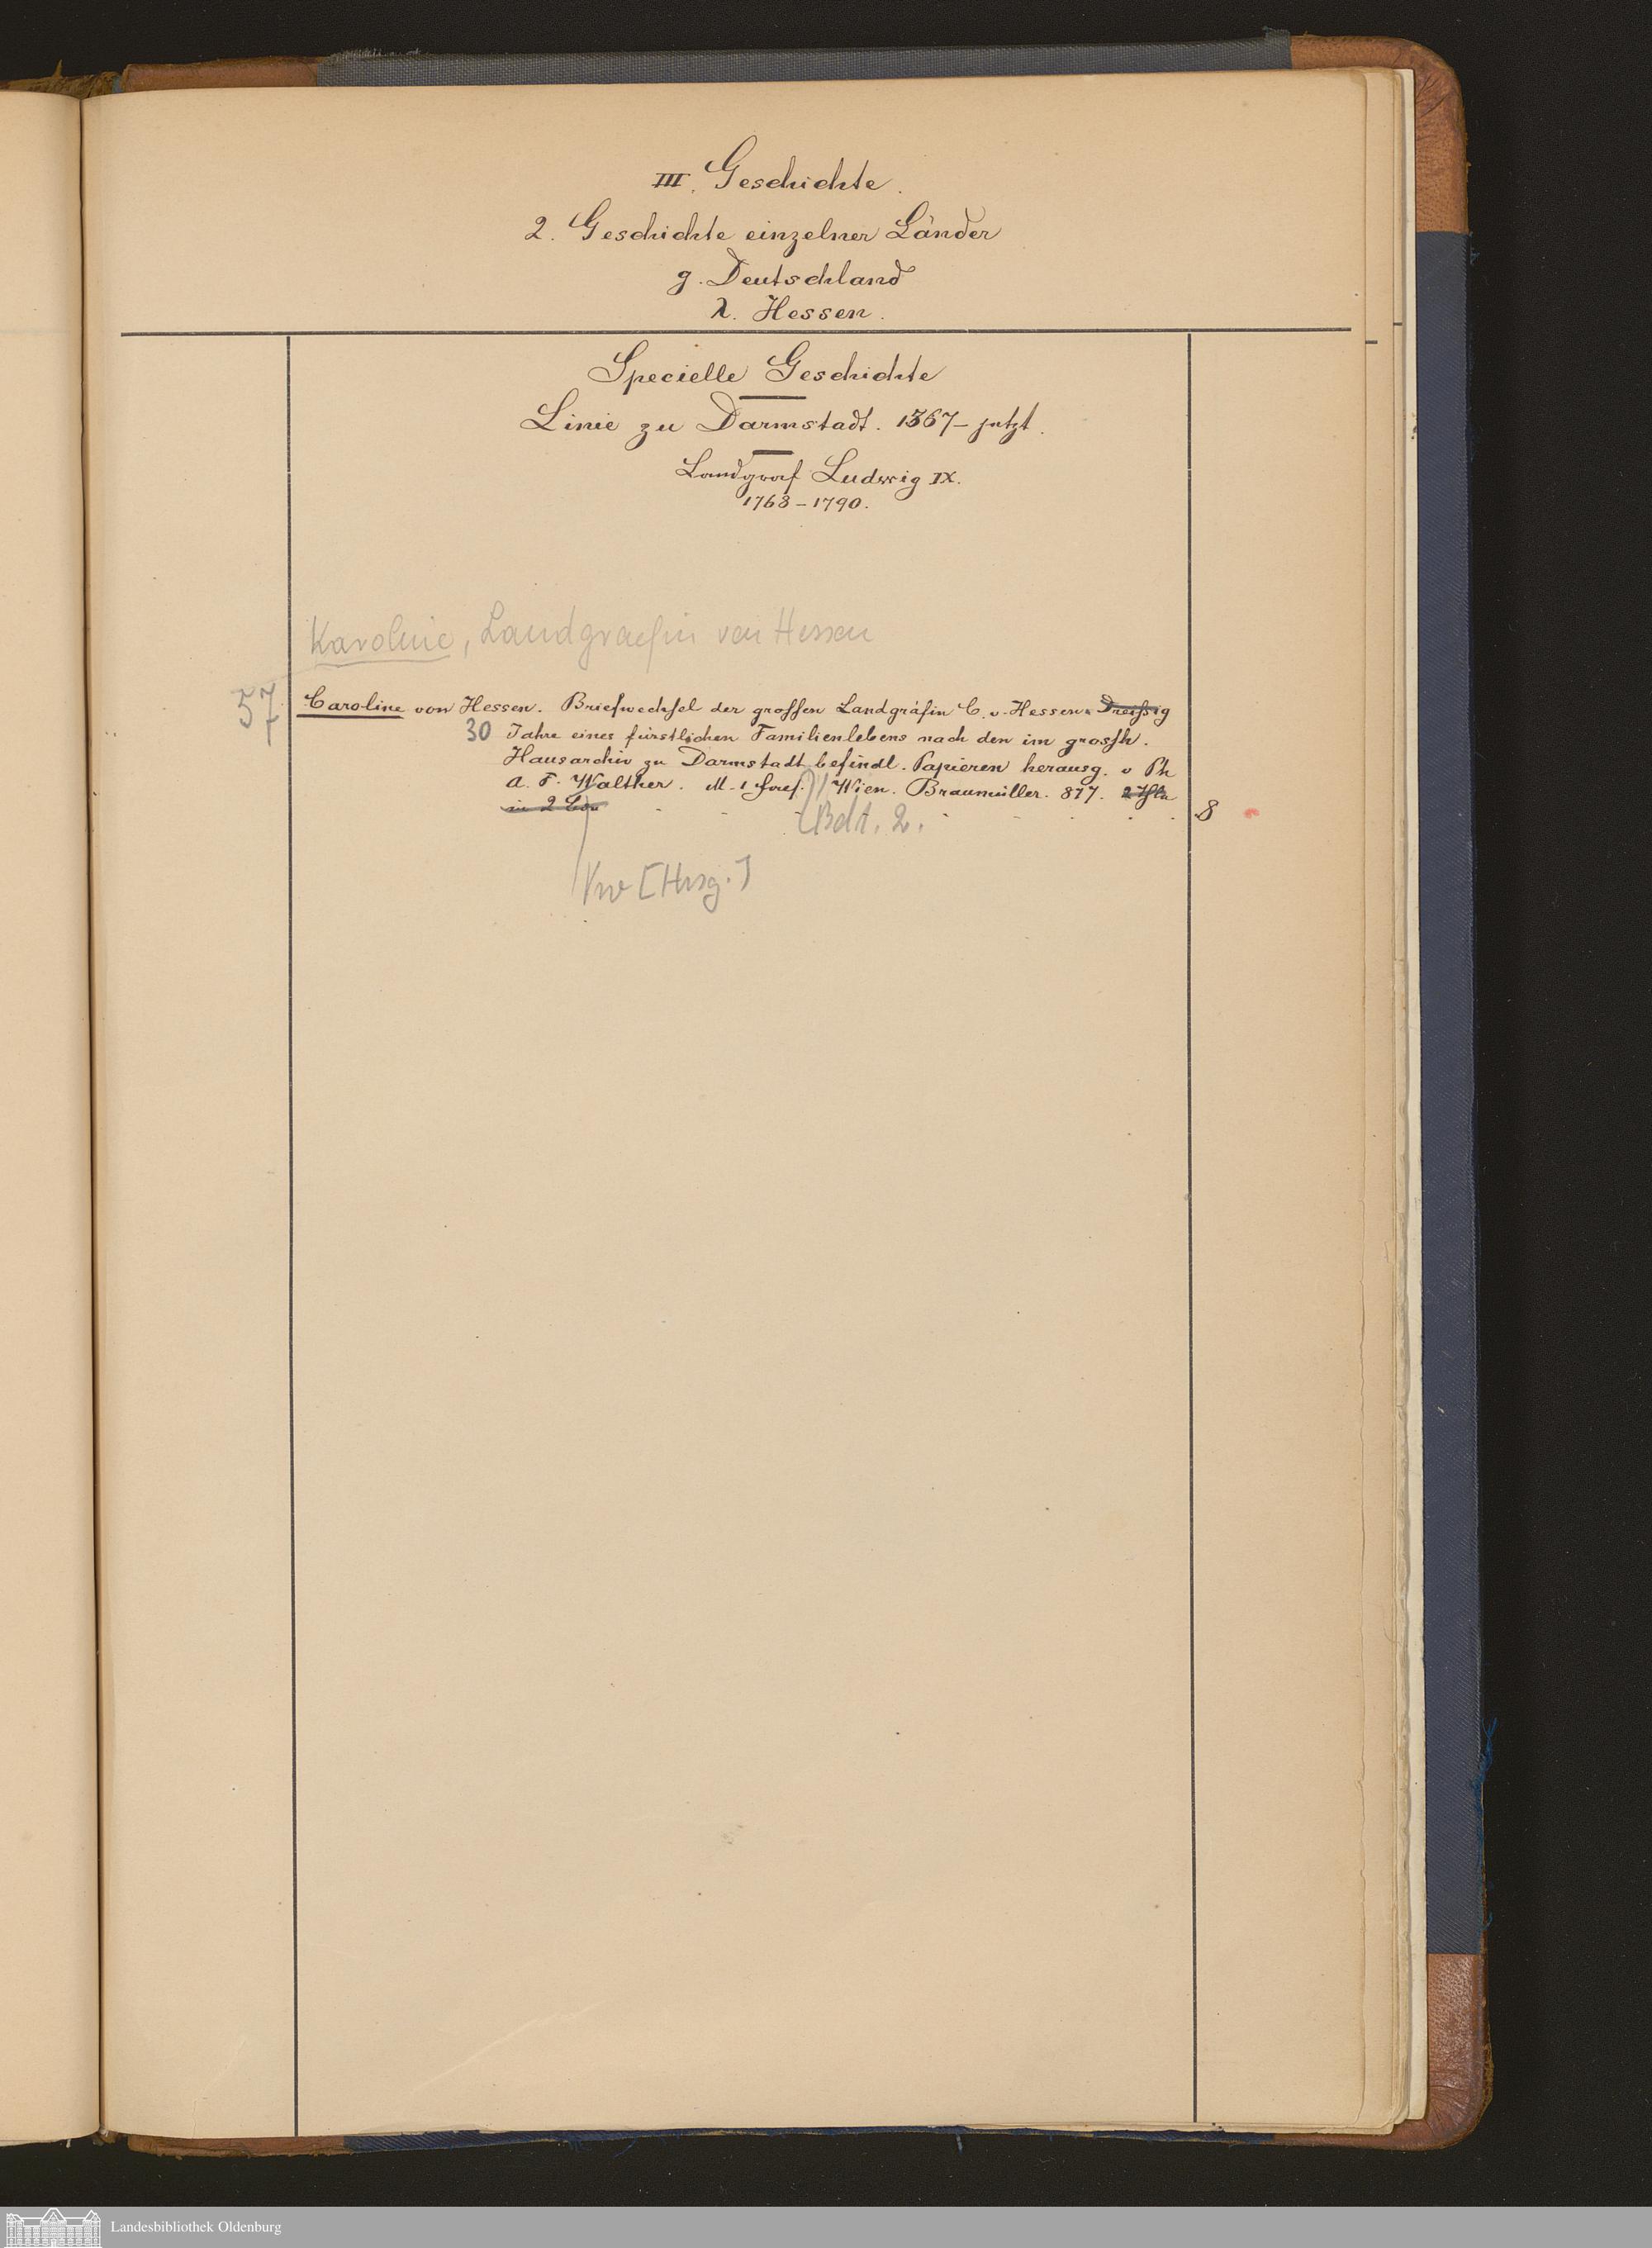 III. Geschichte.
2. Geschichte einzelner Länder
g. Deutschland
λ. Hessen.
Specielle Geschichte
Linie zu Darmstadt. 1567 – jetzt.
Landgraf Ludwig IX.
1768 – 1790.
Karoline, Landgraefin von Hessen
57
Caroline von Hessen. Briefwechsel der grossen Landgräfin C. v. Hessen. Dreißig
30 Jahre eines fürstlichen Familienlebens nach den im grossh.
Hausarchiv zu Darmstadt befindl. Papieren herausg. v Ph
A. F. Walther. M. 1 Wien. Braumüller. 877. 2
in 2 8
Bdt. 2.
Vw [Hrsg.]
Landesbibliothek Oldenburg